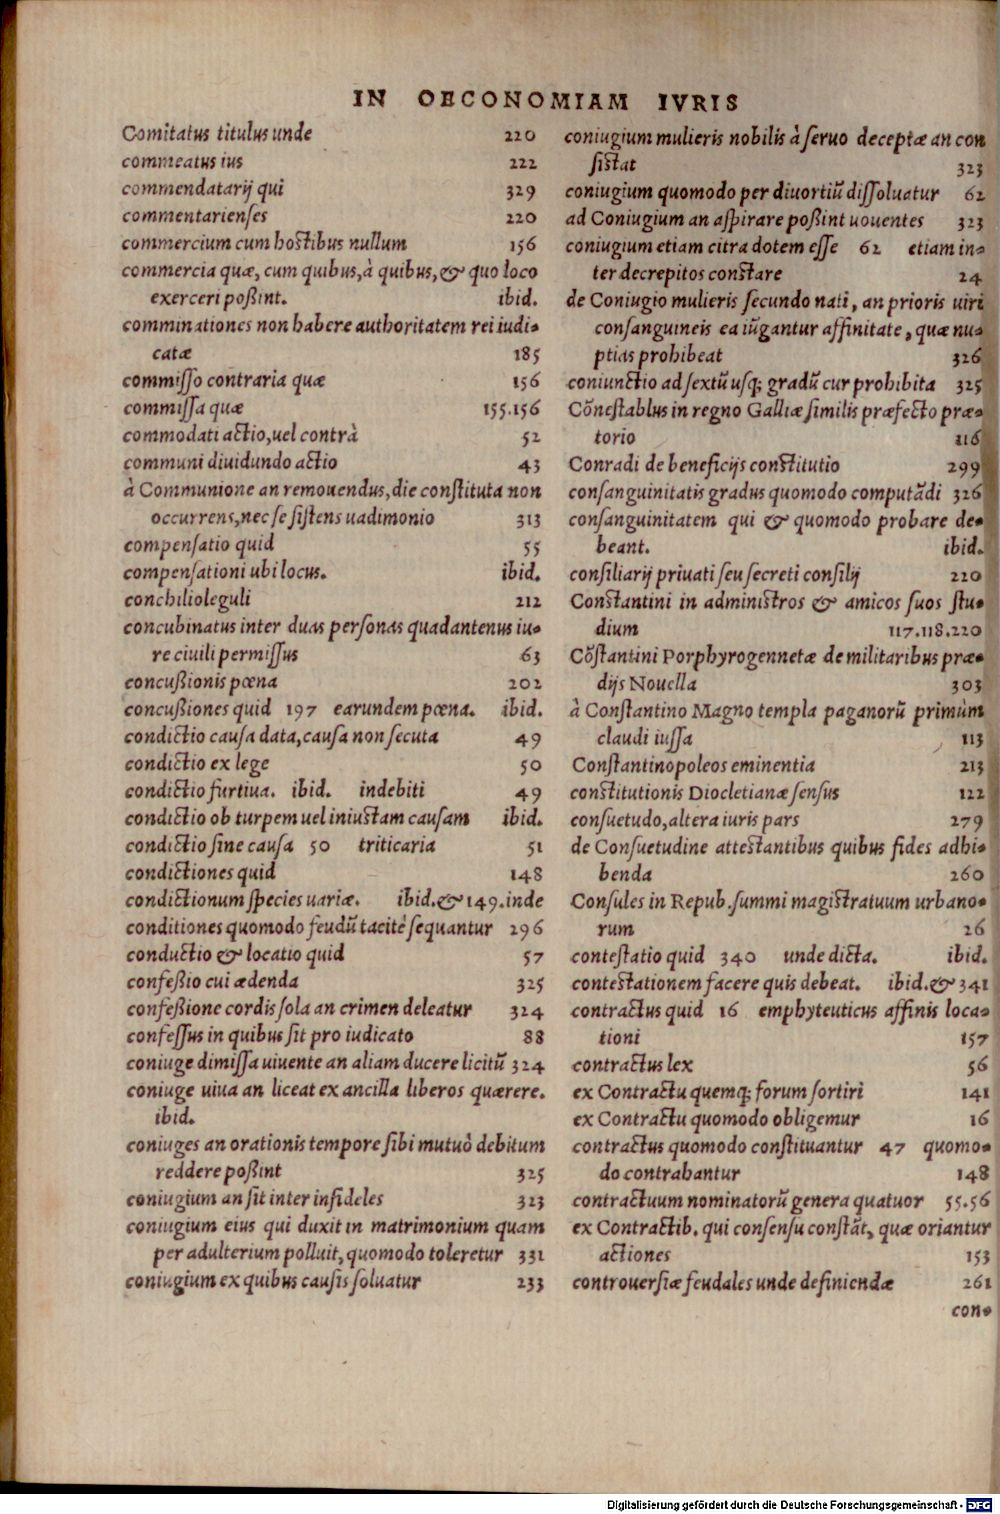 IN OECONOMIAM IVRIS
Comitatus titulus unde 220
commeatus ius 222
commendatarij qui 329
commentarienses 220
commercium cum hostibus nullum 156
commercia quæ, cum quibus, à quibus, & quo loco
exerceri poßint. ibid.
comminationes non habere authoritatem rei iudi-
catæ 185
commisso contraria quæ 156
commissa quæ 155.156
commodati actio, uel contrà 52
communi diuidundo actio 43
à Communione an remouendus, die constituta non
occurrens, nec se sistens uadimonio 313
compensatio quid 55
compensationi ubi locus. ibid.
conchilioleguli 212
concubinatus inter duas personas quadantenus iu-
re ciuili permissus 63
concußionis pœna 202
concußiones quid 197 earundem pœna. ibid.
condictio causa data, causa non secuta 49
condictio ex lege 50
condictio furtiua. ibid. indebiti 49
condictio ob turpem uel iniustam causam ibid.
condictio sine causa 50 triticaria 51
condictiones quid 148
condictionum species uariæ. ibid. & 149. inde
conditiones quomodo feudū tacitè sequantur 296
conductio & locatio quid 57
confeßio cui ædenda 325
confeßione cordis sola an crimen deleatur 324
confessus in quibus sit pro iudicato 88
coniuge dimissa uiuente an aliam ducere licitū 324
coniuge uiua an liceat ex ancilla liberos quærere.
ibid.
coniuges an orationis tempore sibi mutuò debitum
reddere poßint 325
coniugium an sit inter infideles 323
coniugium eius qui duxit in matrimonium quam
per adulterium polluit, quomodo toleretur 331
coniugium ex quibus causis soluatur 233
coniugium mulieris nobilis à seruo deceptæ an con
sistat 323
coniugium quomodo per diuortiū dissoluatur 62
ad Coniugium an aspirare poßint uouentes 323
coniugium etiam citra dotem esse 62 etiam in-
ter decrepitos constare 24
de Coniugio mulieris secundo nati, an prioris uiri
consanguineis ea iūgantur affinitate, quæ nu-
ptias prohibeat 326
coniunctio ad sextū usq; gradū cur prohibita 325
Cōnestablus in regno Galliæ similis præfecto præ-
torio 116
Conradi de beneficijs constitutio 299
consanguinitatis gradus quomodo computādi 326
consanguinitatem qui & quomodo probare de-
beant. ibid.
consiliarij priuati seu secreti consilij 220
Constantini in administros & amicos suos stu-
dium 117.118.220
Cōstantini Porphyrogennetæ de militaribus præ-
dijs Nouella 303
à Constantino Magno templa paganorū primùm
claudi iussa 113
Constantinopoleos eminentia 213
constitutionis Diocletianæ sensus 122
consuetudo, altera iuris pars 279
de Consuetudine attestantibus quibus fides adhi-
benda 260
Consules in Repub. summi magistratuum urbano-
rum 26
contestatio quid 340 unde dicta. ibid.
contestationem facere quis debeat. ibid. & 341
contractus quid 16 emphyteuticus affinis loca-
tioni 157
contractus lex 56
ex Contractu quemq; forum sortiri 141
ex Contractu quomodo obligemur 16
contractus quomodo constituantur 47 quomo-
do contrahantur 148
contractuum nominatorū genera quatuor 55.56
ex Contractib. qui consensu constāt, quæ oriantur
actiones 153
controuersiæ feudales unde definiendæ 261
con-
Digitalisierung gefördert durch die Deutsche Forschungsgemeinschaft - DFG